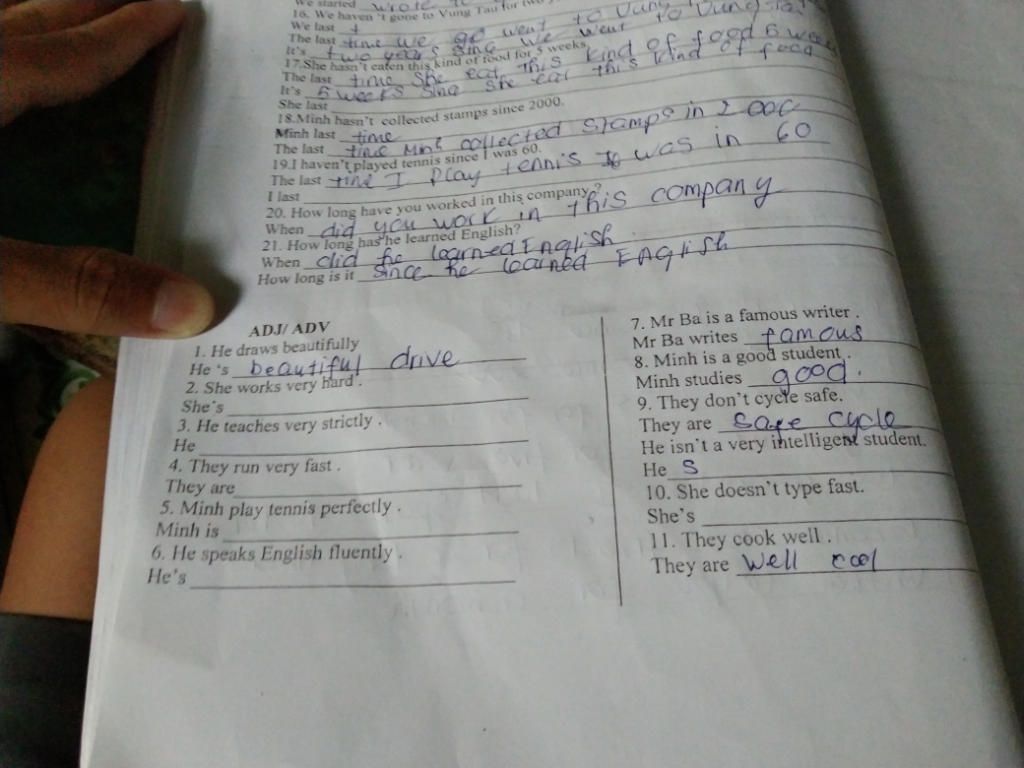 We started wrote to
16. We haven't gone to Vung Tau for two
We last
The last time we go went to Vung
It's two years sine we went to Vung Ta
17.She hasn't eaten this kind of food for 5 weeks.
The last time she eat this kind of food 5 week
It's 5 weeks sine she eat this kind of food
She last
18.Minh hasn't collected stamps since 2000.
Minh last time
The last time Minh collected stamps in 2000
19.I haven't played tennis since I was 60.
The last time I play tennis I was in 60
I last
20. How long have you worked in this company?
When did you work in this company
21. How long has he learned English?
When did he learned English
How long is it since he learned English
ADJ/ ADV
1. He draws beautifully
He 's beautiful drive
2. She works very hard .
She's
3. He teaches very strictly .
He
4. They run very fast .
They are
5. Minh play tennis perfectly .
Minh is
6. He speaks English fluently .
He's
7. Mr Ba is a famous writer .
Mr Ba writes famous
8. Minh is a good student .
Minh studies good.
9. They don't cycle safe.
They are safe cycle
He isn't a very intelligent student.
He s
10. She doesn't type fast.
She's
11. They cook well .
They are well cool